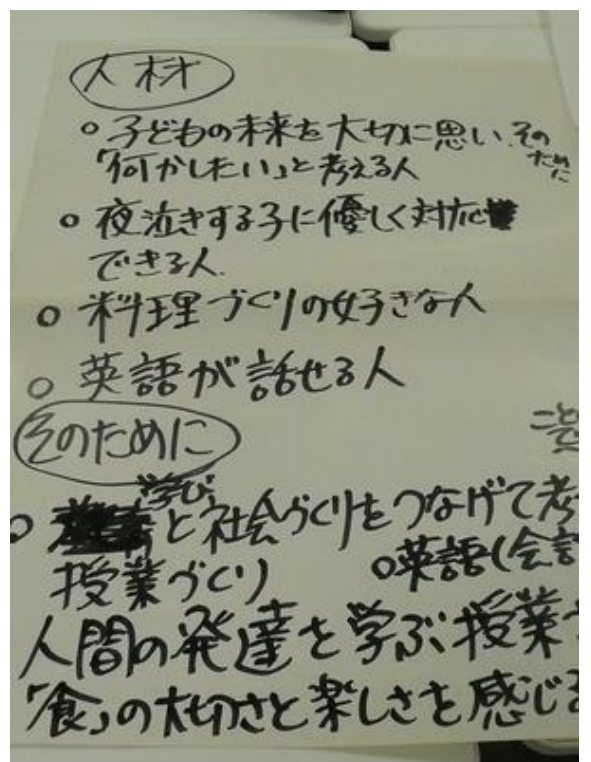 人材
○子どもの未来を大切に思い、そのために
「何かしたい」と考える人
○夜泣きする子に優しく対応
できる人.
○料理づくりの好きな人
○英語が話せる人
そのために
○学びと社会づくりをつなげて考
授業づくり
○英語(会話
人間の発達を学ぶ授業
「食」の大切さと楽しさを感じる